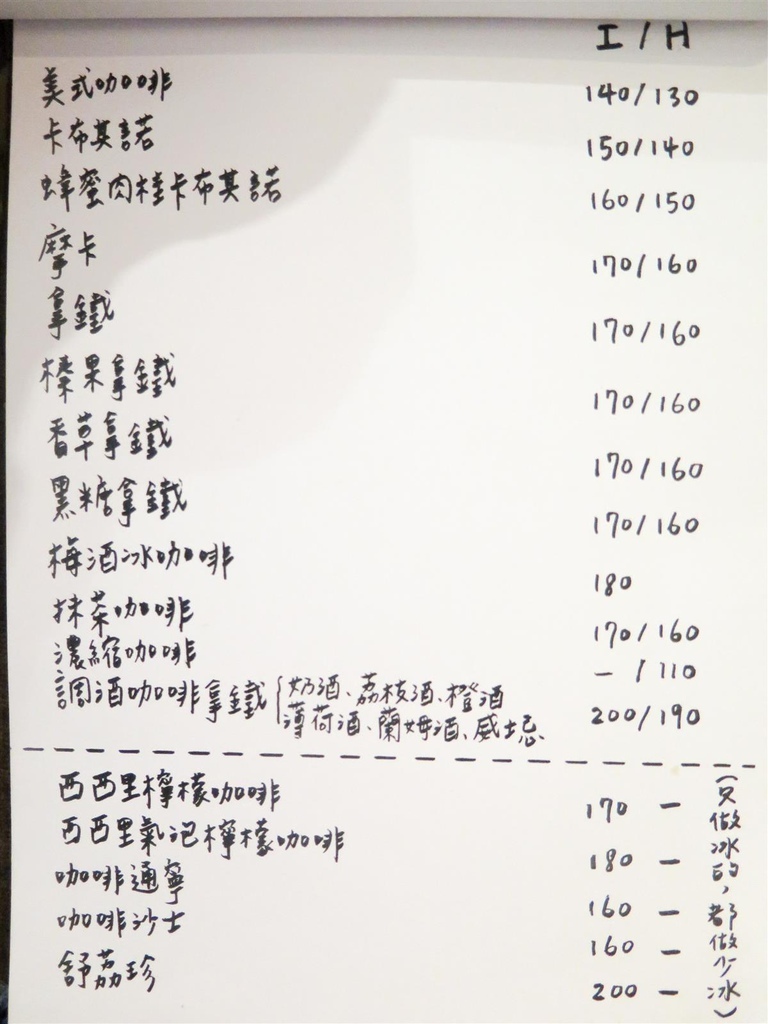 I / H
美式咖啡 140/130
卡布其諾 150/140
蜂蜜肉桂卡布其諾 160/150
摩卡 170/160
拿鐵 170/160
榛果拿鐵 170/160
香草拿鐵 170/160
黑糖拿鐵 170/160
梅酒冰咖啡 180
抹茶咖啡 170/160
濃縮咖啡 - / 110
調酒咖啡拿鐵 { 奶酒、荔枝酒、橙酒
薄荷酒、蘭姆酒、威士忌 200/190
西西里檸檬咖啡 170 -
西西里氣泡檸檬咖啡 180 -
咖啡通寧 160 -
咖啡沙士 160 -
舒荔珍 200 -
(只做冰的,都做少冰)